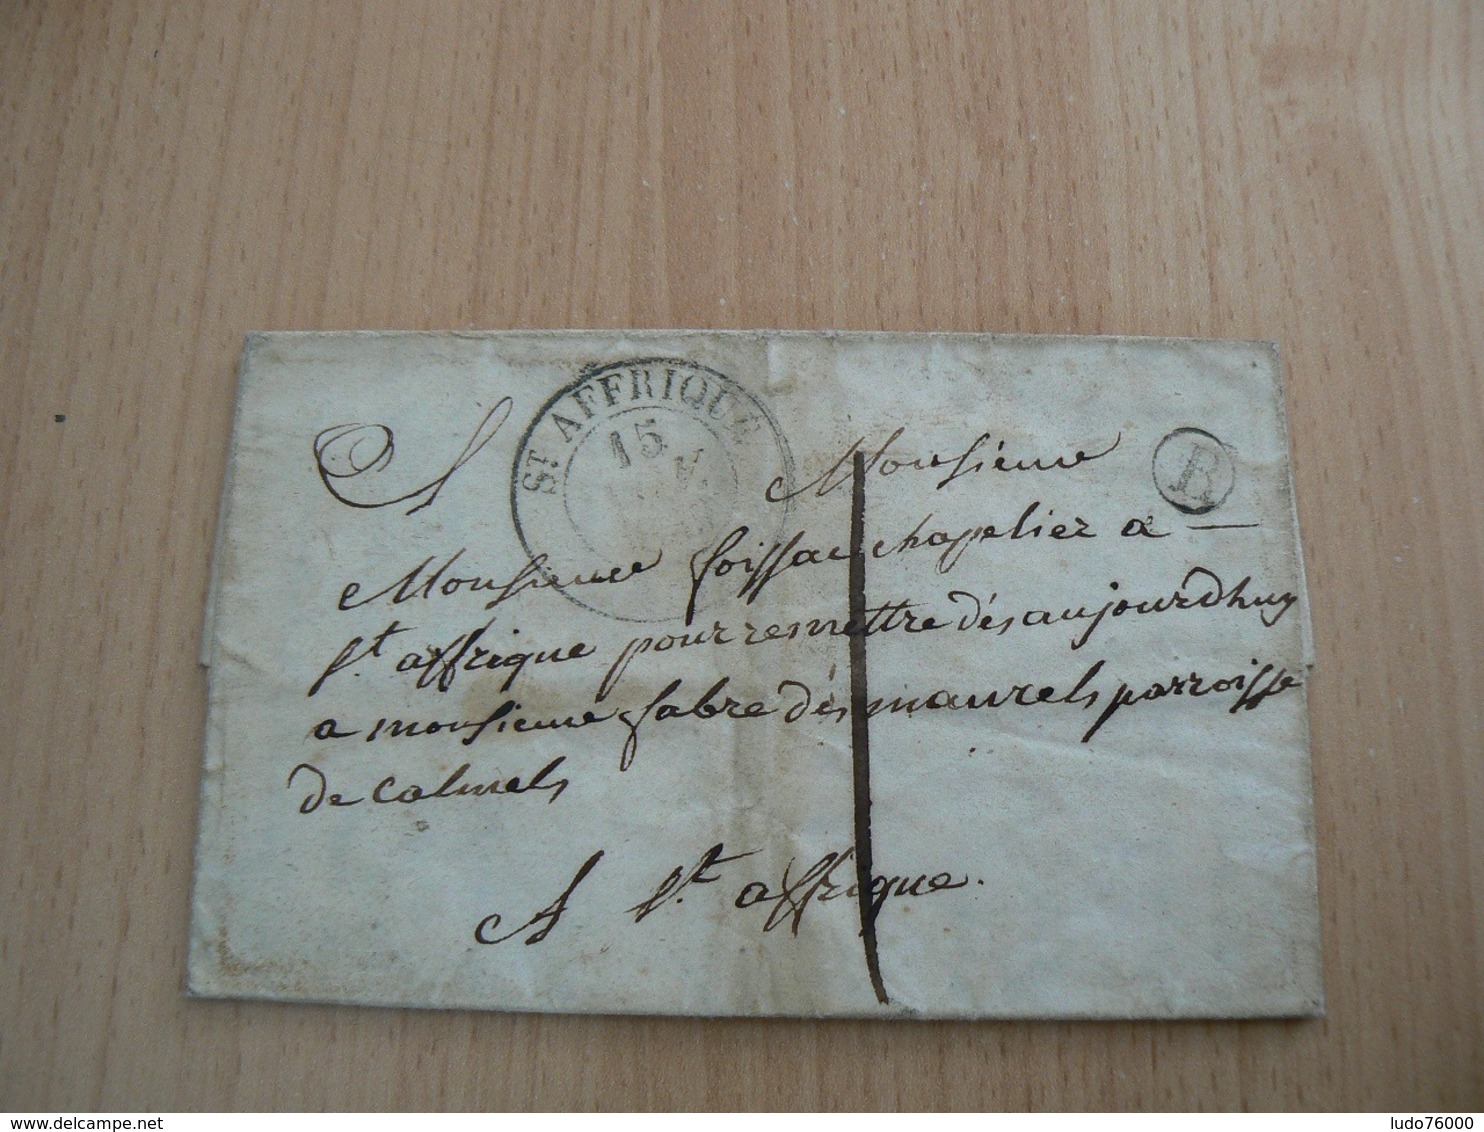 ST. AFFRIQUE
15
B
A Monsieur
Monsieur foissac chapelier a —
St. affrique pour remettre dés aujourdhuy
a monsieur fabre dés maurels parroisse
de Calmels
A St. affrique.
delcampe.net
ludo76000